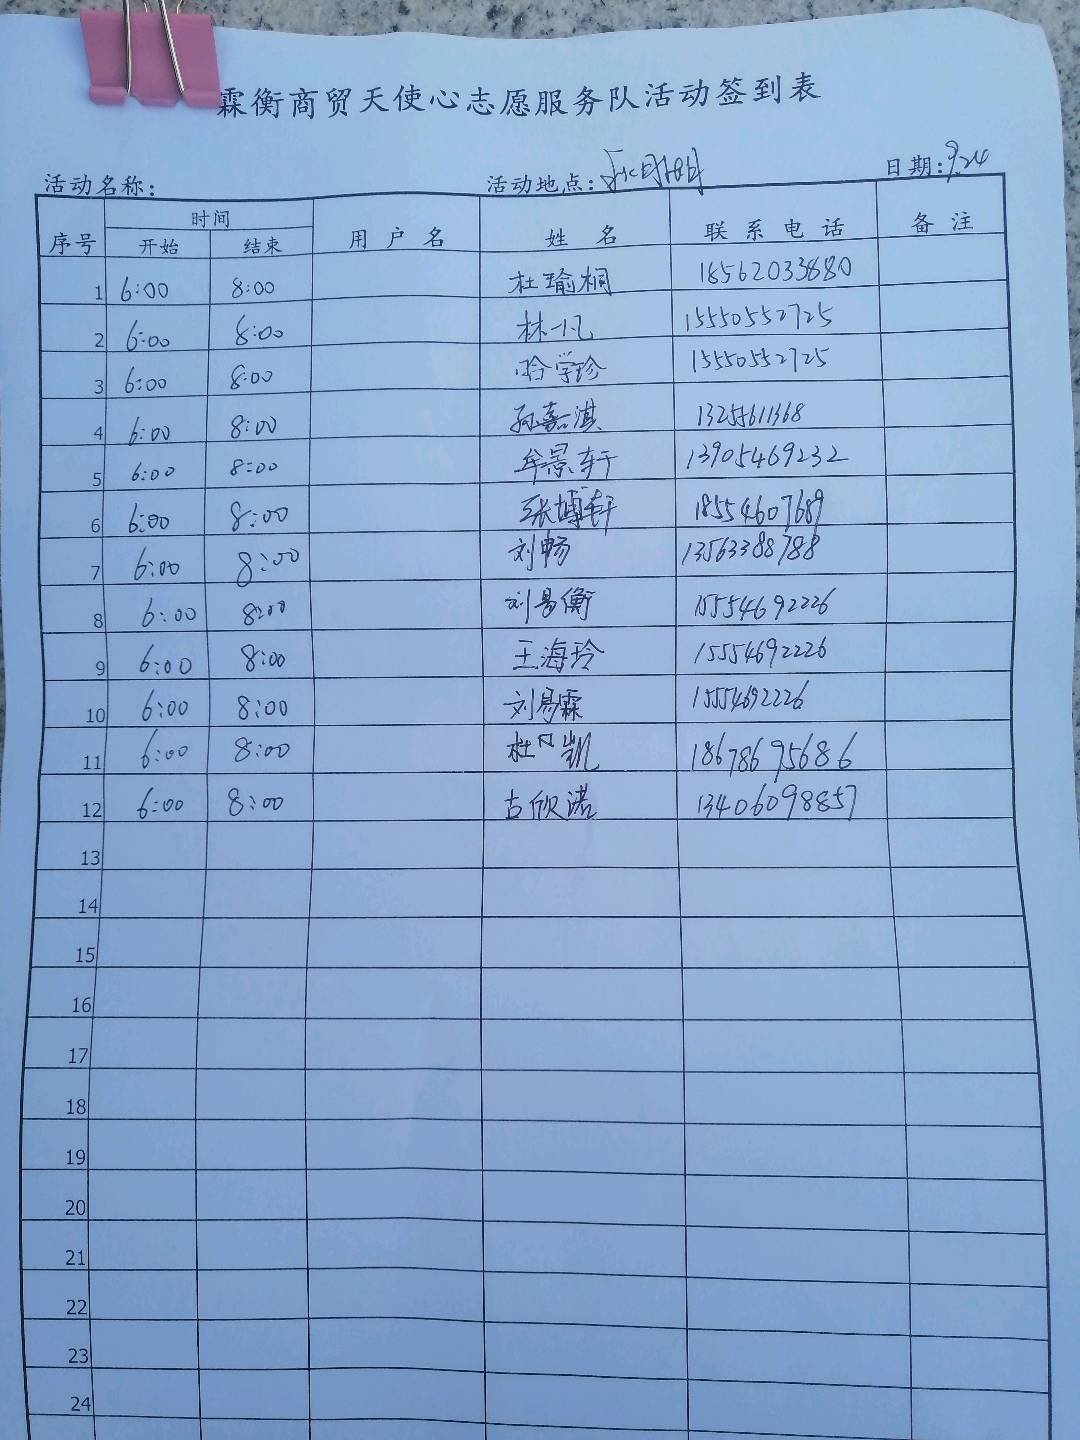 霖衡商贸天使心志愿服务队活动签到表
活动名称: 活动地点: 日期:9.24
序号 时间 用户名 姓名 联系电话 备注
开始 结束
1 6:00 8:00 杜瑜桐 18562033880
2 6:00 8:00 林一凡 15550552725
3 6:00 8:00 哈学珍 15550552725
4 6:00 8:00 孙嘉淇 13255611368
5 6:00 8:00 牟景轩 13905469232
6 6:00 8:00 张博轩 18554607689
7 6:00 8:00 刘畅 13563388788
8 6:00 8:00 刘易衡 15554692226
9 6:00 8:00 王海玲 15554692226
10 6:00 8:00 刘易霖 15554692226
11 6:00 8:00 杜凯 18678695686
12 6:00 8:00 古欣诺 13406098857
13
14
15
16
17
18
19
20
21
22
23
24